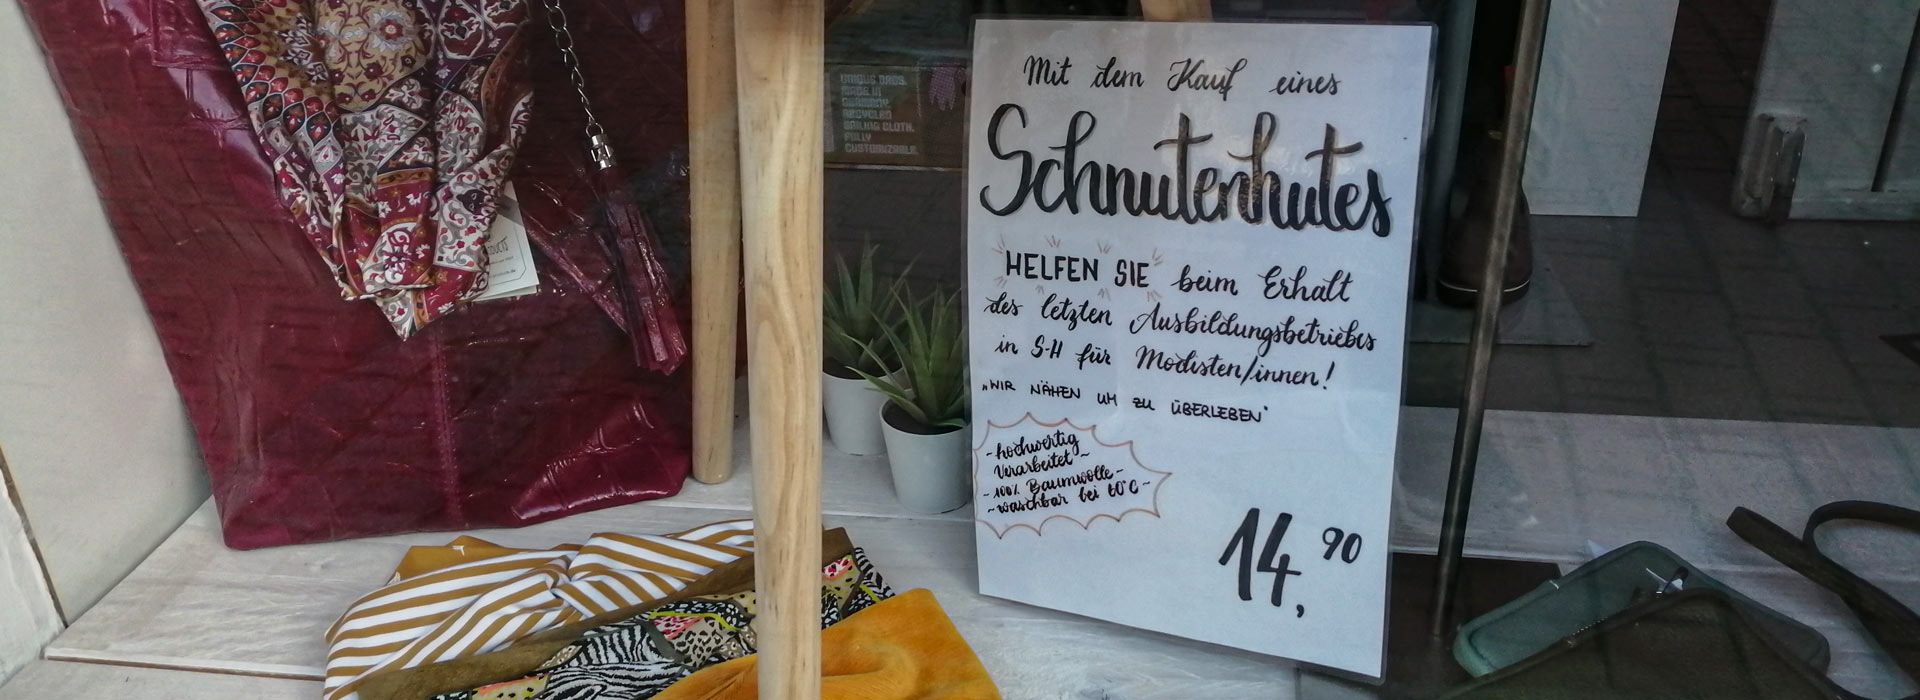 UNIQUE BAGS.
MADE IN
GERMANY.
RECYCLED
SAILING CLOTH.
FULLY
CUSTOMIZABLE.
Mit dem Kauf eines
Schnutenhutes
HELFEN SIE beim Erhalt
des letzten Ausbildungsbetriebes
in S-H für Modisten/innen!
„WIR NÄHEN UM ZU ÜBERLEBEN"
- hochwertig
Verarbeitet -
- 100% Baumwolle -
- waschbar bei 60°C -
14,90